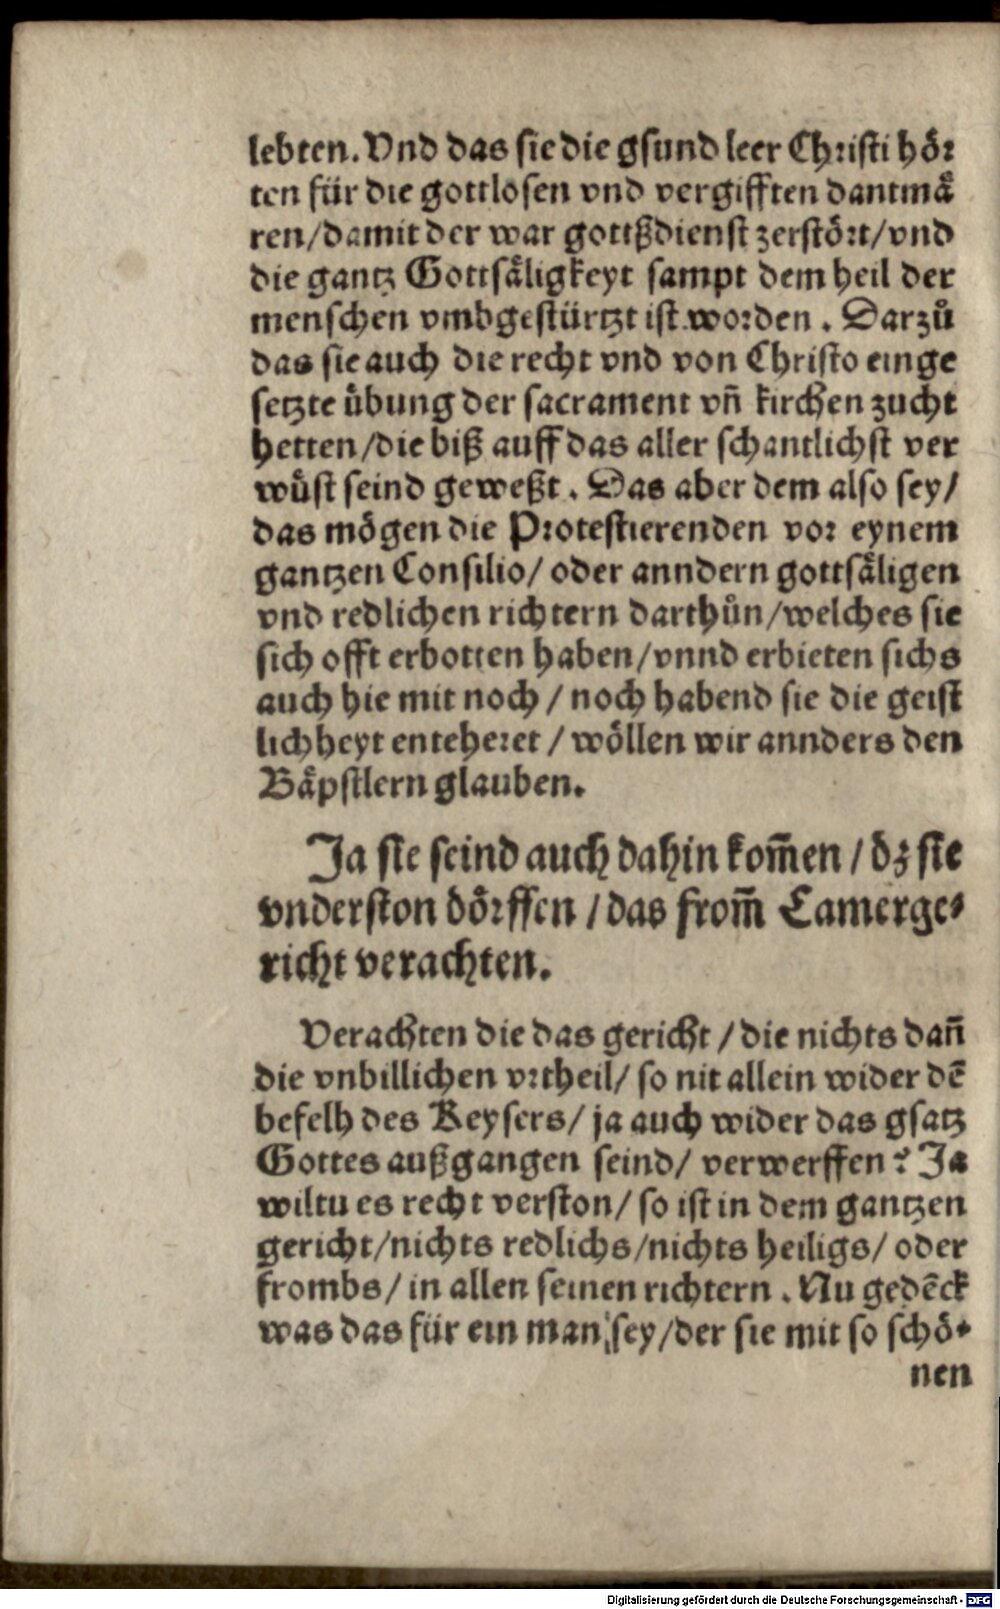 lebten. Vnd das sie die gsund leer Christi hör
ten für die gottlosen vnd vergifften dantmä
ren/damit der war gottßdienst zerstört/vnd
die gantz Gottsäligkeyt sampt dem heil der
menschen vmbgestürtzt ist worden. Darzů
das sie auch die recht vnd von Christo einge
setzte übung der sacrament vñ kirchen zucht
hetten/die biß auff das aller schantlichst ver
wüst seind geweßt. Das aber dem also sey/
das mögen die Protestierenden vor eynem
gantzen Consilio/ oder anndern gottsäligen
vnd redlichen richtern darthůn/welches sie
sich offt erbotten haben/vnnd erbieten sichs
auch hie mit noch/ noch habend sie die geist
lichheyt enteheret/ wöllen wir annders den
Bäpstlern glauben.
Ja sie seind auch dahin kom̃en/ dz sie
vnderston dörffen/das from̃ Camerge⸗
richt verachten.
Verachten die das gericht/die nichts dañ
die vnbillichen vrtheil/ so nit allein wider dẽ
befelh des Keysers/ ja auch wider das gsatz
Gottes außgangen seind/ verwerffen? Ja
wiltu es recht verston/ so ist in dem gantzen
gericht/nichts redlichs/nichts heiligs/ oder
frombs/ in allen seinen richtern. Nu gedẽck
was das für ein man sey/der sie mit so schö⸗
nen
Digitalisierung gefördert durch die Deutsche Forschungsgemeinschaft - DFG